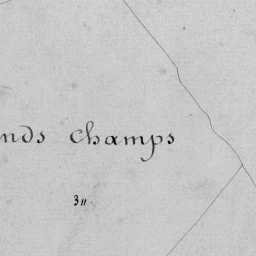 nds champs
3"